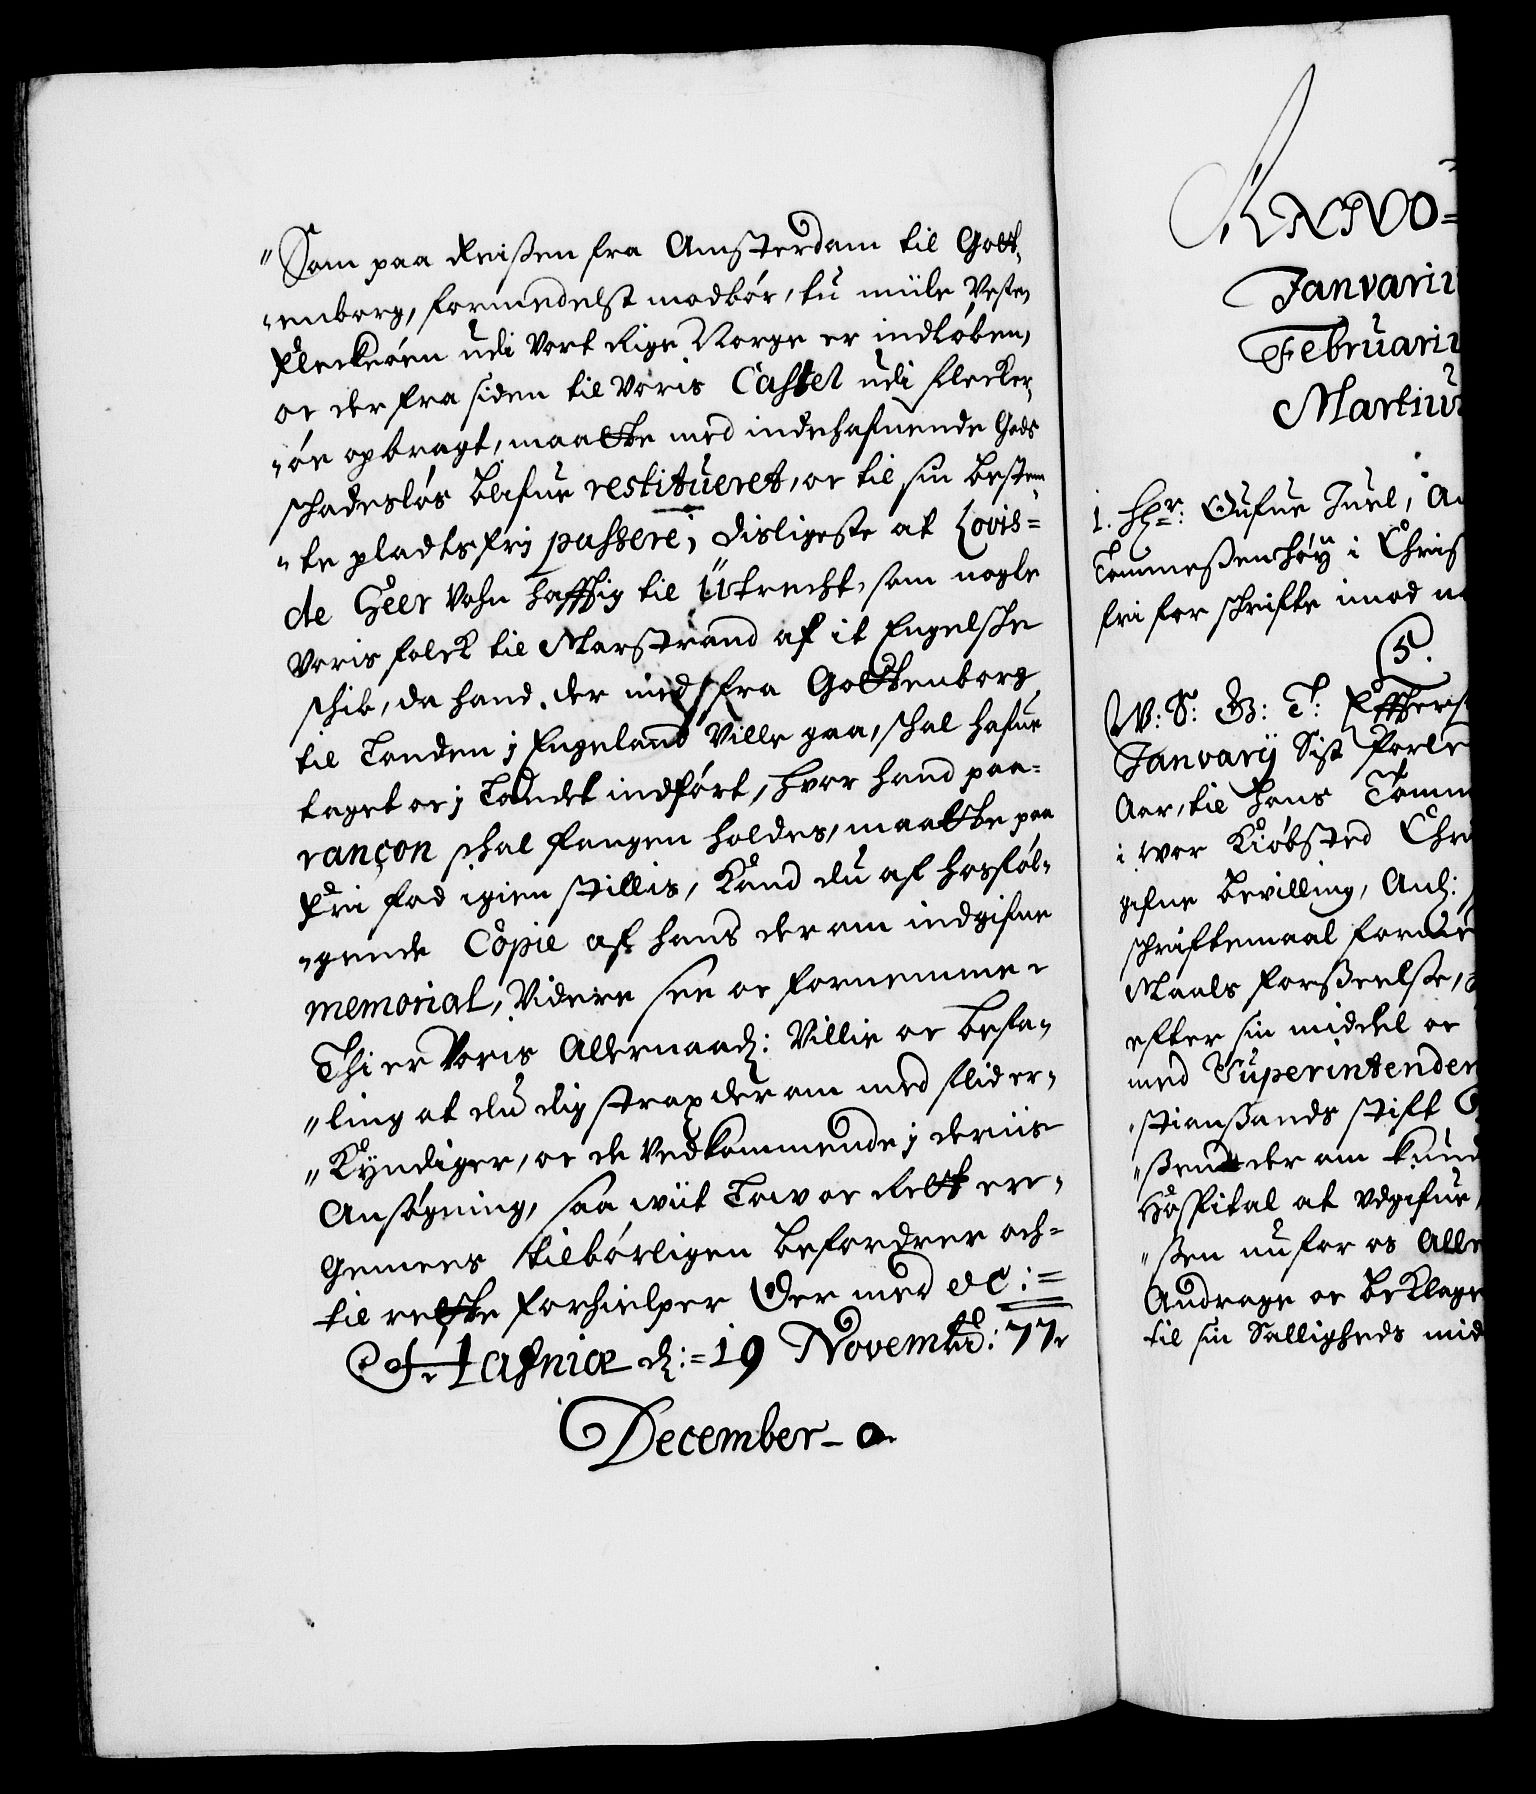 "Som paa Reisen fra Amsterdam til Gott,
"enborg, formedelst modbör, tu miile Vesten
Fleckeröen udi Vort Rige Norge er indlöben,
oc der fra siden til Voris Castel udi Flecker,
"öe opbragt, maatte med indehafuende Gods
schadeslös blifue restitueret, oc til sin bestem,
"te pladts frj passere, disligeste at Lovis=
de Geer Vohn hafftig til Ütrecht, som nogle
Voris folck til Marstrand af it Engelske
schib, da hand der med fra Gottenborg
til Londen j Engeland Ville gaa, schal hafue
taget oc j Landet indfört, hvor hand paa=
rançon schal fangen holdes, maatte paa
Fri fod igien stillis, Kand du af hosföl,
"gende Copie af hans derom indgifne
memorial, Videre see oc fornemme
Thi er Voris Allernaad: Villie oc befa,
"ling at du dig strax derom med flid er,
"Kyndiger, oc de Vedkommende j deriis
Ansögning, saa wiit Low oc Rett er,
gemees tilbörligen befordrer och=
til rette forhielper Der med etc:=
Hafniæ d:=19 Novembr: 77
December - o
ANNO=
Januari
Februari
Martiu
1. Hr: Oufue Juel, An
Tommeßen höy i Chris
fri for schrifte imod
5.
W: S: G: T: Effters
Januarij Sist forle
Aar, til Hans Tomm
i wor Kiöbsted Chri
gifne bevilling, And:
schriftemaal for
Maals forseelse,
efter sin middel oc
med Superintenden
"stiansands stift
"ßen der om kund
Hospital at Udgifue,
"ßen nu for os Alle
Andrage oc beklage
til sin Salligheds mid